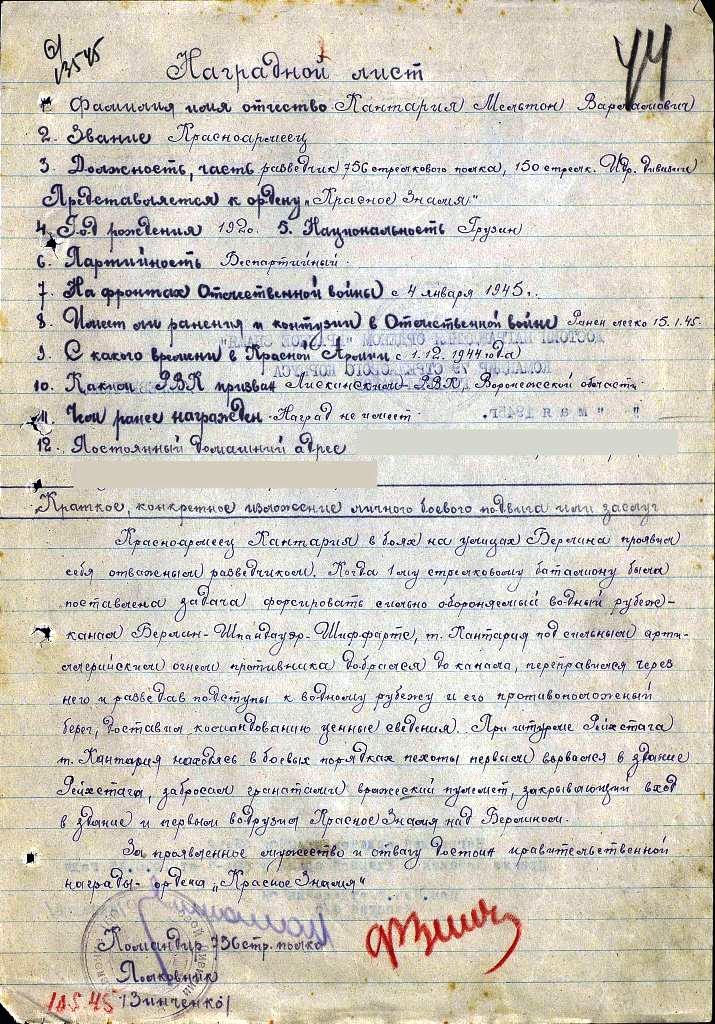 13545
44
Наградной лист
1. Фамилия имя отчество Кантария Мелытон Варламович
2. Звание Красноармеец
3. Должность, часть разведчик 756 стрелкового полка, 150 стрелк. Идр. дивизии
Представляется к ордену „Красное Знамя"
4. Год рождения 1920. 5. Национальность Грузин
6. Партийность Беспартийный
7. На фронтах Отечественной войны с 4 января 1945г.
8. Имеет ли ранения и контузии в Отечественной войне Ранен легко 15.1.45.
9. С какого времени в Красной Армии с 1.12.1944 года)
10. Каким РВК призван Лискинским РВК, Воронежской области
11. Чем ранее награжден Наград не имеет
12. Постоянный домашний адрес
Краткое, конкретное изложение личного боевого подвига или заслуг
Красноармеец Кантария в боях на улицах Берлина проявил
себя отважным разведчиком. Когда 1му стрелковому баталиону была
поставлена задача форсировать сильно обороняемый водный рубеж-
канал Берлин-Шпандауэр-Шиффарте, т. Кантария под сильным арти-
ллерийским огнем противника добрался до канала, переправился через
него и разведав подступы к водному рубежу и его противоположный
берег, доставил командованию ценные сведения. При штурме Рейхстага
т. Кантария находясь в боевых порядках пехоты первым ворвался в здание
Рейхстага, забросал гранатами вражеский пулемет, закрывающий вход
в здание и первым водрузил Красное Знамя над Берлином.
За проявленное мужество и отвагу достоин правительственной
награды- ордена „Красное Знамя"
Командир 756 стр. полка
Полковник
/Зинченко/
10.5.45